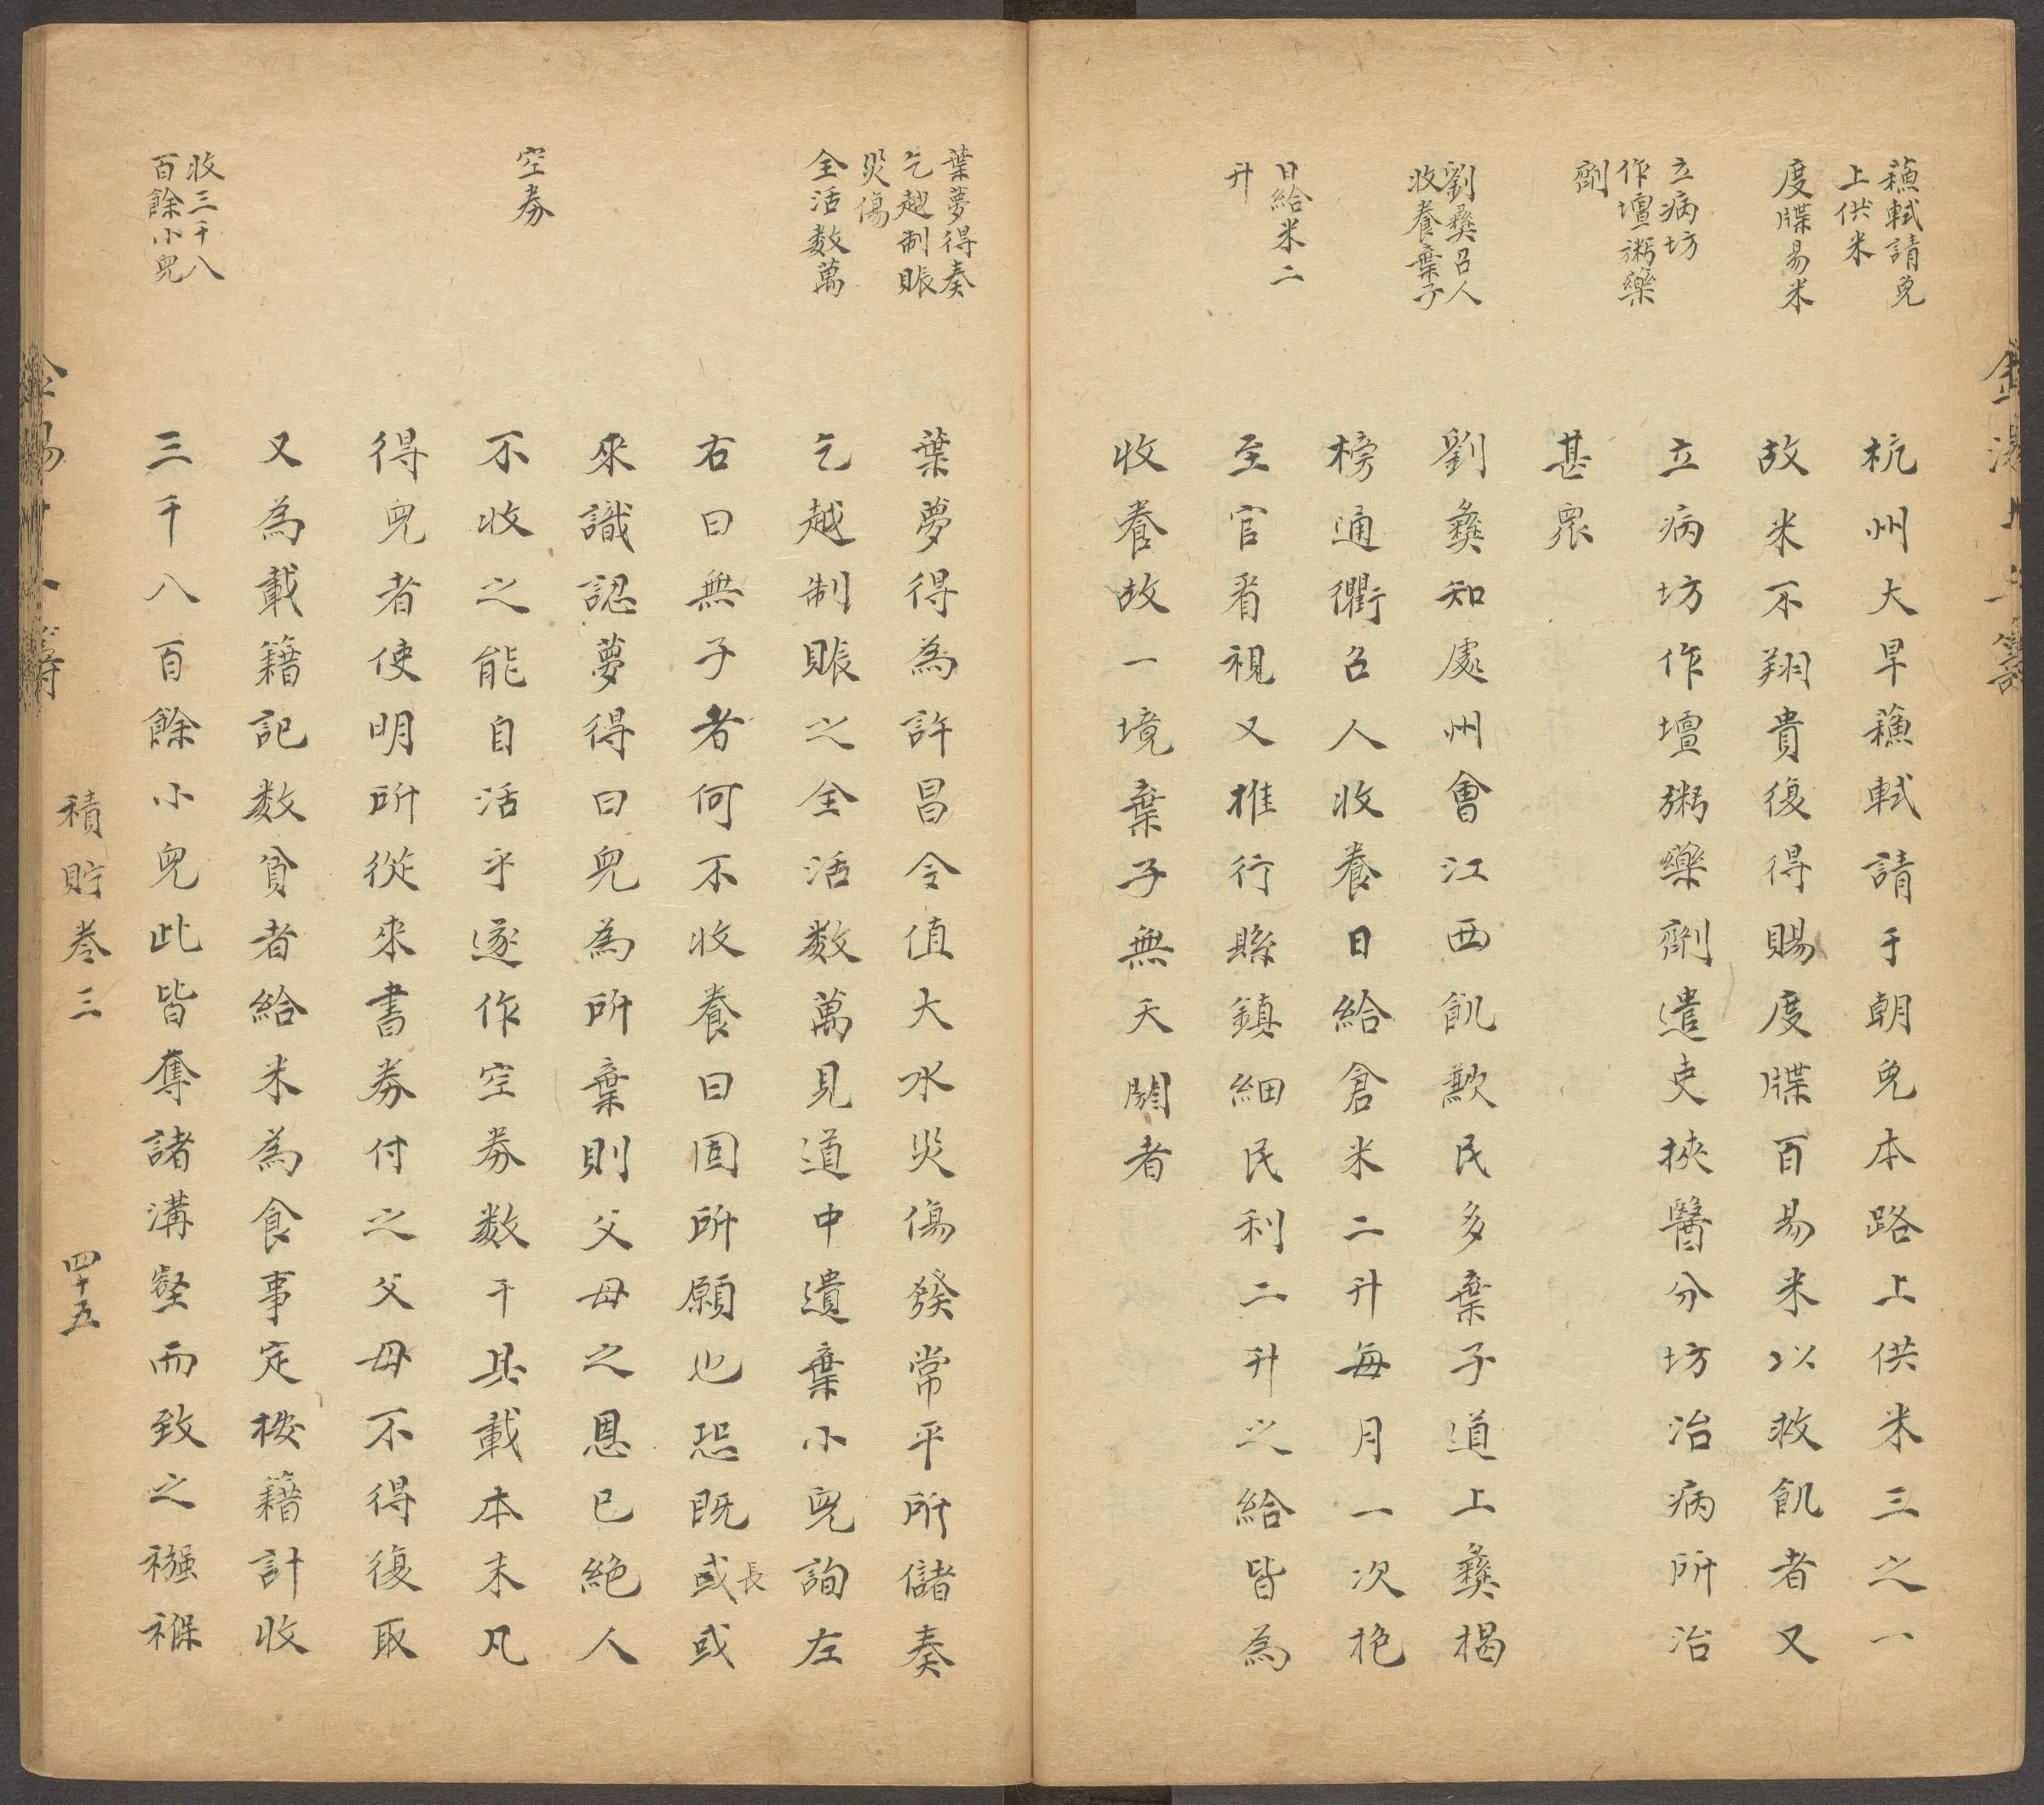 蘓軾請免
上供米
度牒易米
立病坊
作壇粥藥
劑
劉彝召人
收養棄子
日給米二
升
杭州大旱蘓軾請于朝免本路上供米三之一
故米不翔貴復得賜度牒百易米以救飢者又
立病坊作壇粥藥劑遣吏挾醫分坊治病所治
甚衆
劉彝知處州會江西飢歉民多棄子道上彝揭
榜通衢召人收養日給倉米二升每月一次抱
至官看視又推行縣鎮細民利二升之給皆為
收養故一境棄子無夭閼者
葉夢得奏
乞越制賑
災傷
全活数萬
空券
收三千八
百餘小兒
葉夢得為許昌令值大水災傷發常平所儲奏
乞越制賑之全活数萬見道中遺棄小兒詢左
右曰無子者何不收養曰固所願也恐既或長或
來識認夢得曰兒為所棄則父母之恩已絶人
不收之能自活乎遂作空券数千具載本末凡
得兒者使明所從來書券付之父母不得復取
又為載籍記数貧者給米為食事定按籍計收
三千八百餘小兒此皆奪諸溝壑而致之襁褓
積貯卷三
四十五